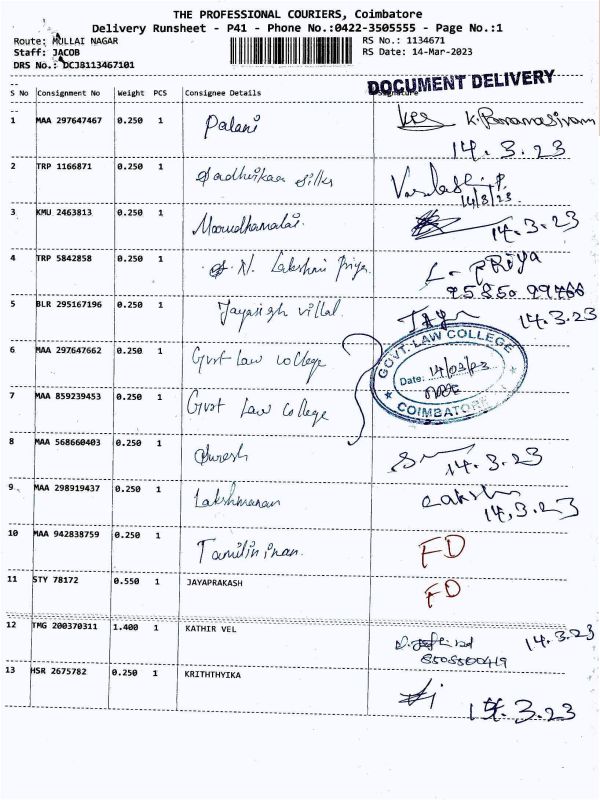 THE PROFESSIONAL COURIERS, Coimbatore
Delivery Runsheet - P41 - Phone No.:0422-3505555 - Page No.:1
Route: MULLAI NAGAR RS No.: 1134671
Staff: JACOB RS Date: 14-Mar-2023
DRS No.: DCJ8113467101
DOCUMENT DELIVERY
S No Consignment No Weight PCS Consignee Details Signature
1 MAA 297647467 0.250 1 Palani K. Paramasivam
14.3.23
2 TRP 1166871 0.250 1 Sadhvikaa Silks
14/3/23
3 KMU 2463813 0.250 1 14.3.23
4 TRP 5842858 0.250 1 S. N. Lakshmi Priya. L. Priya
5 BLR 295167196 0.250 1 14.3.23
6 MAA 297647662 0.250 1 Govt Law College
GOVT. LAW COLLEGE
Date: 14/03/23
COIMBATORE
7 MAA 859239453 0.250 1 Govt Law College
8 MAA 568660403 0.250 1 Suresh 14.3.23
9 MAA 298919437 0.250 1 Lakshmanan
14.3.23
10 MAA 942838759 0.250 1 FD
11 STY 78172 0.550 1 JAYAPRAKASH FD
12 TMG 200370311 1.400 1 KATHIR VEL 14.3.23
8508500419
13 HSR 2675782 0.250 1 KRITHTHYIKA
14.3.23